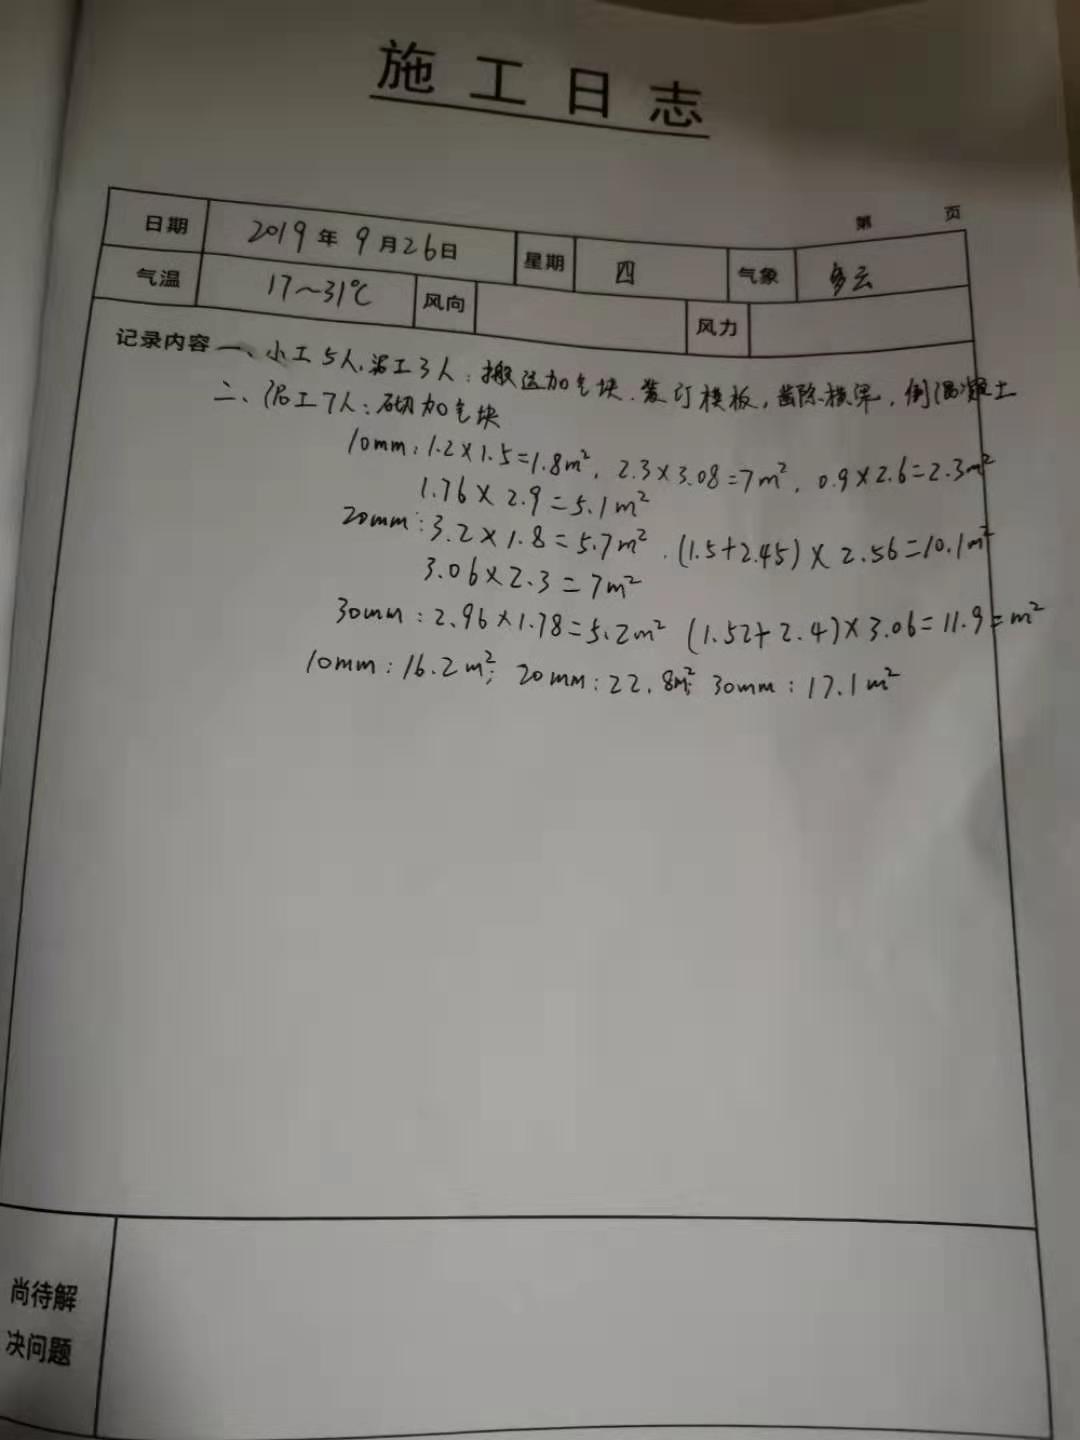 施工日志
第 页
日期 2019年9月26日 星期 四 气象 多云
气温 17～31℃ 风向 风力
记录内容 一、小工5人，泥工3人：搬运加气块、装订模板，凿除横梁，倒混凝土
二、泥工7人：砌加气块
10mm：1.2×1.5=1.8m²，2.3×3.08=7m²，0.9×2.6=2.3m²
1.76×2.9=5.1m²
20mm：3.2×1.8=5.7m²，(1.5+2.45)×2.56=10.1m²
3.06×2.3=7m²
30mm：2.96×1.78=5.2m² (1.52+2.4)×3.06=11.9=m²
10mm：16.2m²；20mm：22.8m²；30mm：17.1m²
尚待解
决问题